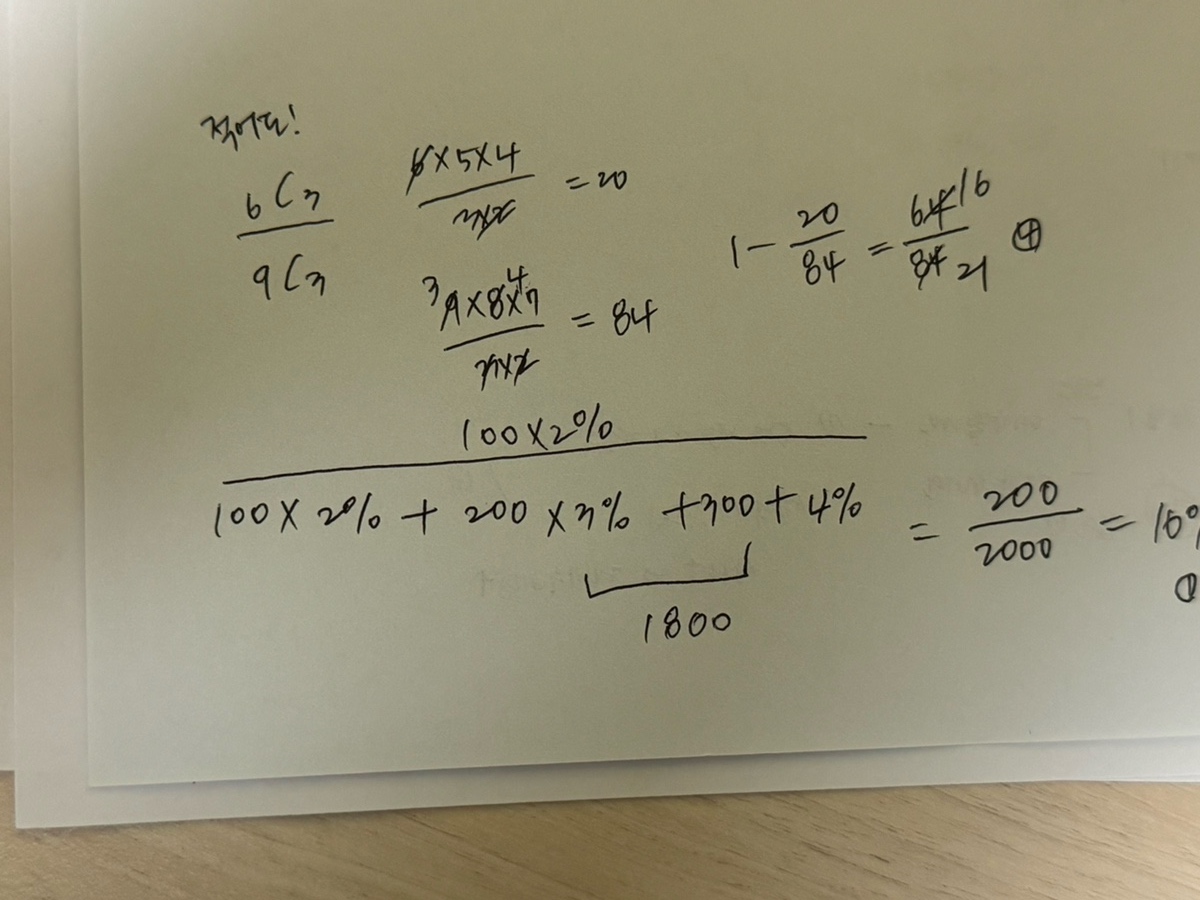 적어도!
6C3 / 9C3
6×5×4 / 3×2 = 20
3 9×8×7 4 / 3×2 = 84
1 - 20/84 = 64/84 16 21 ④
100×2%
100×2% + 200×3% +300+4% = 200/2000 = 10%
①
1800